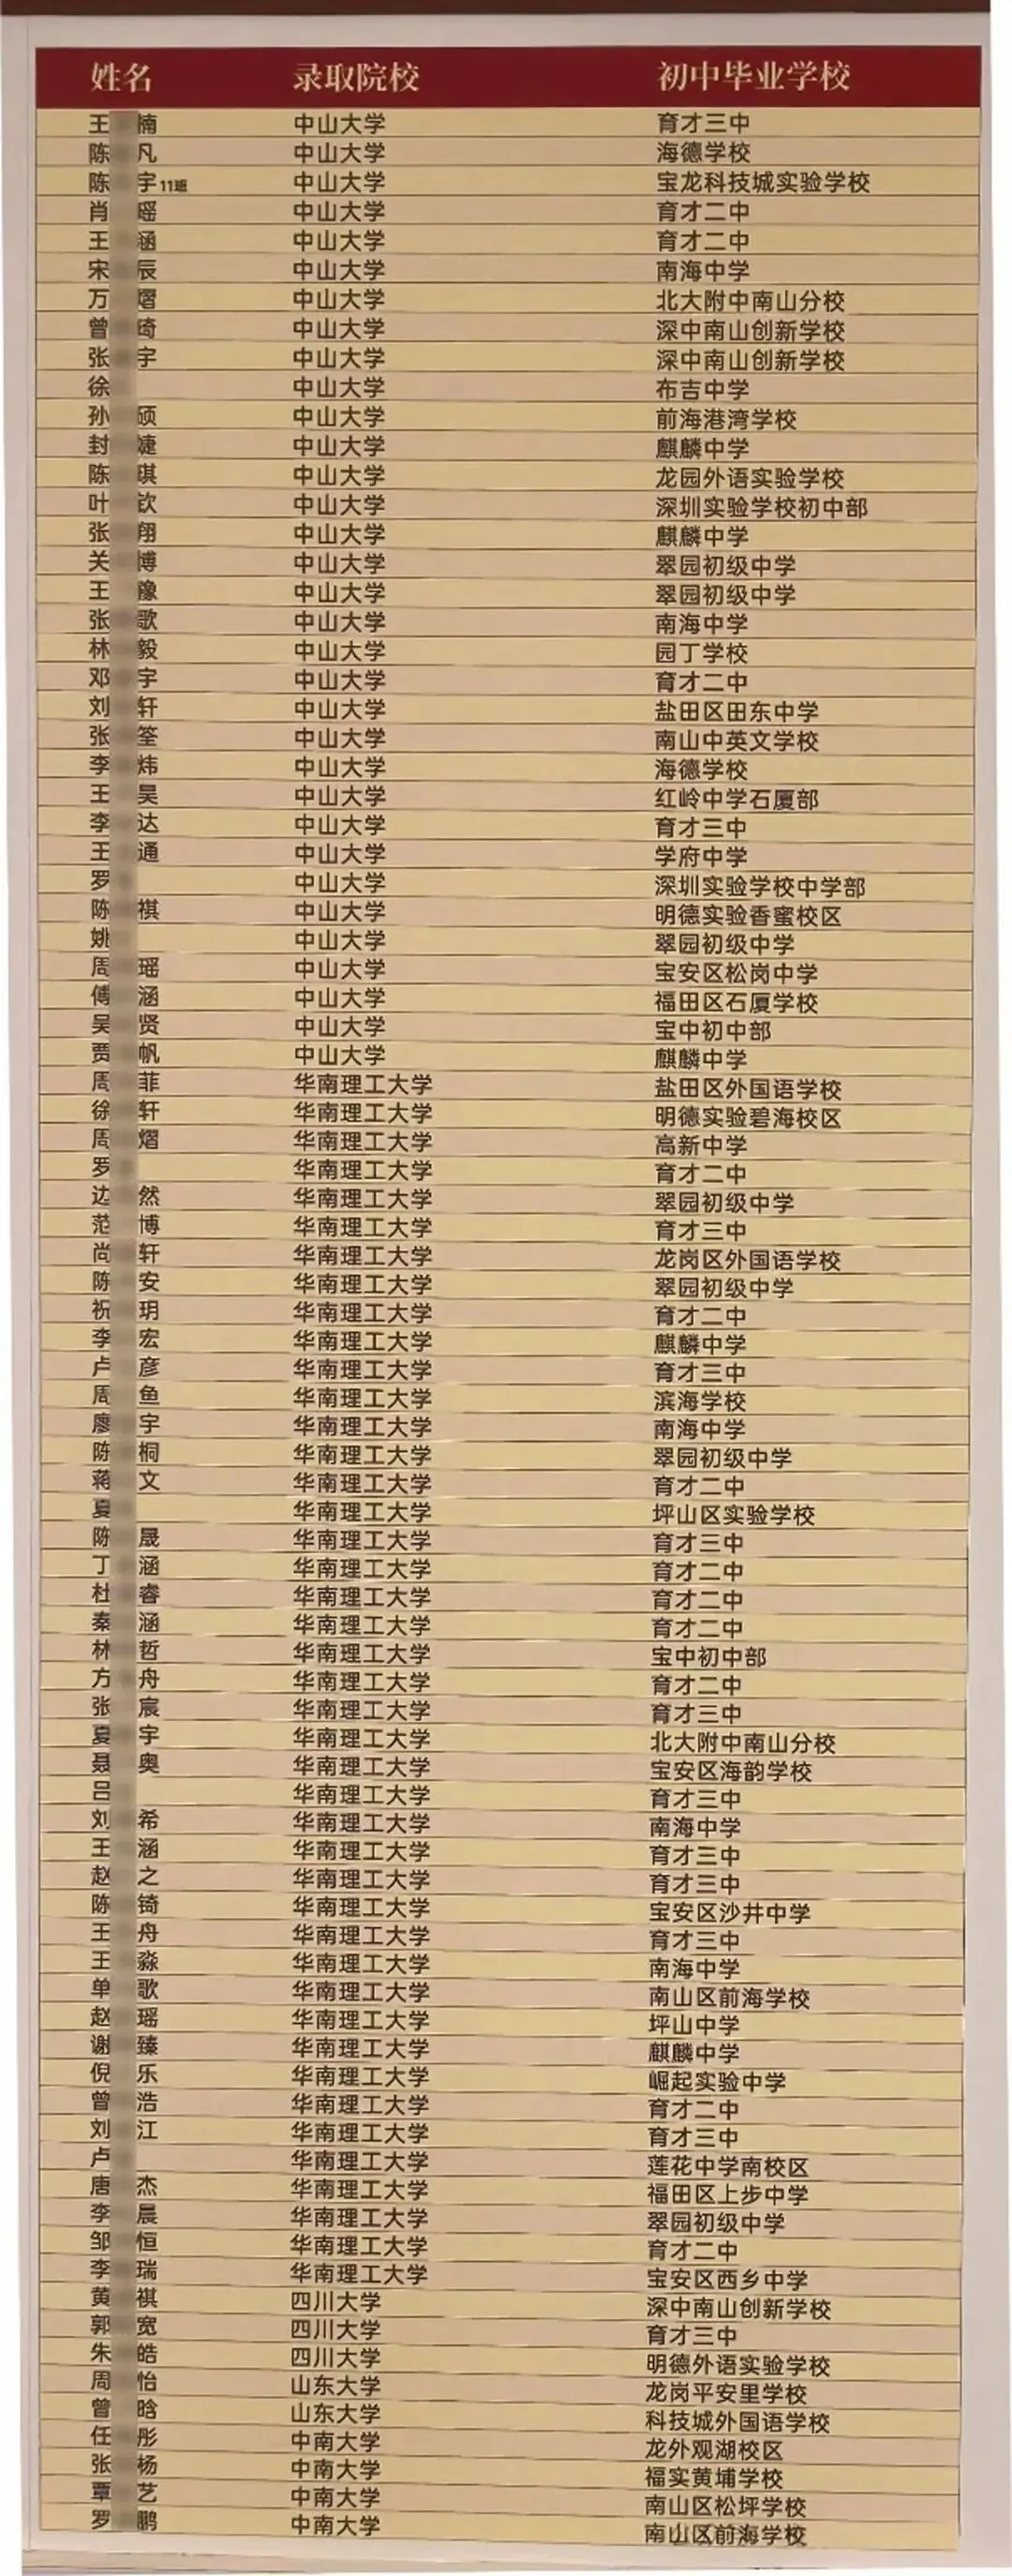 姓名 录取院校 初中毕业学校
王 楠 中山大学 育才三中
陈 凡 中山大学 海德学校
陈 宇11班 中山大学 宝龙科技城实验学校
肖 瑶 中山大学 育才二中
王 涵 中山大学 育才二中
宋 辰 中山大学 南海中学
万 熠 中山大学 北大附中南山分校
曾 琦 中山大学 深中南山创新学校
张 宇 中山大学 深中南山创新学校
徐 中山大学 布吉中学
孙 硕 中山大学 前海港湾学校
封 婕 中山大学 麒麟中学
陈 琪 中山大学 龙园外语实验学校
叶 钦 中山大学 深圳实验学校初中部
张 翔 中山大学 麒麟中学
关 博 中山大学 翠园初级中学
王 豫 中山大学 翠园初级中学
张 歌 中山大学 南海中学
林 毅 中山大学 园丁学校
邓 宇 中山大学 育才二中
刘 轩 中山大学 盐田区田东中学
张 筌 中山大学 南山中英文学校
李 炜 中山大学 海德学校
王 昊 中山大学 红岭中学石厦部
李 达 中山大学 育才三中
王 通 中山大学 学府中学
罗 中山大学 深圳实验学校中学部
陈 祺 中山大学 明德实验香蜜校区
姚 中山大学 翠园初级中学
周 瑶 中山大学 宝安区松岗中学
傅 涵 中山大学 福田区石厦学校
吴 贤 中山大学 宝中初中部
贾 帆 中山大学 麒麟中学
周 菲 华南理工大学 盐田区外国语学校
徐 轩 华南理工大学 明德实验碧海校区
周 熠 华南理工大学 高新中学
罗 华南理工大学 育才二中
边 然 华南理工大学 翠园初级中学
范 博 华南理工大学 育才三中
尚 轩 华南理工大学 龙岗区外国语学校
陈 安 华南理工大学 翠园初级中学
祝 玥 华南理工大学 育才二中
李 宏 华南理工大学 麒麟中学
卢 彦 华南理工大学 育才三中
周 鱼 华南理工大学 滨海学校
廖 宇 华南理工大学 南海中学
陈 桐 华南理工大学 翠园初级中学
蒋 文 华南理工大学 育才二中
夏 华南理工大学 坪山区实验学校
陈 晟 华南理工大学 育才三中
丁 涵 华南理工大学 育才二中
杜 睿 华南理工大学 育才二中
秦 涵 华南理工大学 育才二中
林 哲 华南理工大学 宝中初中部
方 舟 华南理工大学 育才二中
张 宸 华南理工大学 育才三中
夏 宇 华南理工大学 北大附中南山分校
聂 奥 华南理工大学 宝安区海韵学校
吕 华南理工大学 育才三中
刘 希 华南理工大学 南海中学
王 涵 华南理工大学 育才三中
赵 之 华南理工大学 育才三中
陈 锜 华南理工大学 宝安区沙井中学
王 舟 华南理工大学 育才三中
王 淼 华南理工大学 南海中学
单 歌 华南理工大学 南山区前海学校
赵 瑶 华南理工大学 坪山中学
谢 臻 华南理工大学 麒麟中学
倪 乐 华南理工大学 崛起实验中学
曾 浩 华南理工大学 育才二中
刘 江 华南理工大学 育才三中
卢 华南理工大学 莲花中学南校区
唐 杰 华南理工大学 福田区上步中学
李 晨 华南理工大学 翠园初级中学
邹 恒 华南理工大学 育才二中
李 瑞 华南理工大学 宝安区西乡中学
黄 祺 四川大学 深中南山创新学校
郭 宽 四川大学 育才三中
朱 皓 四川大学 明德外语实验学校
周 怡 山东大学 龙岗平安里学校
曾 晗 山东大学 科技城外国语学校
任 彤 中南大学 龙外观湖校区
张 杨 中南大学 福实黄埔学校
覃 艺 中南大学 南山区松坪学校
罗 鹏 中南大学 南山区前海学校